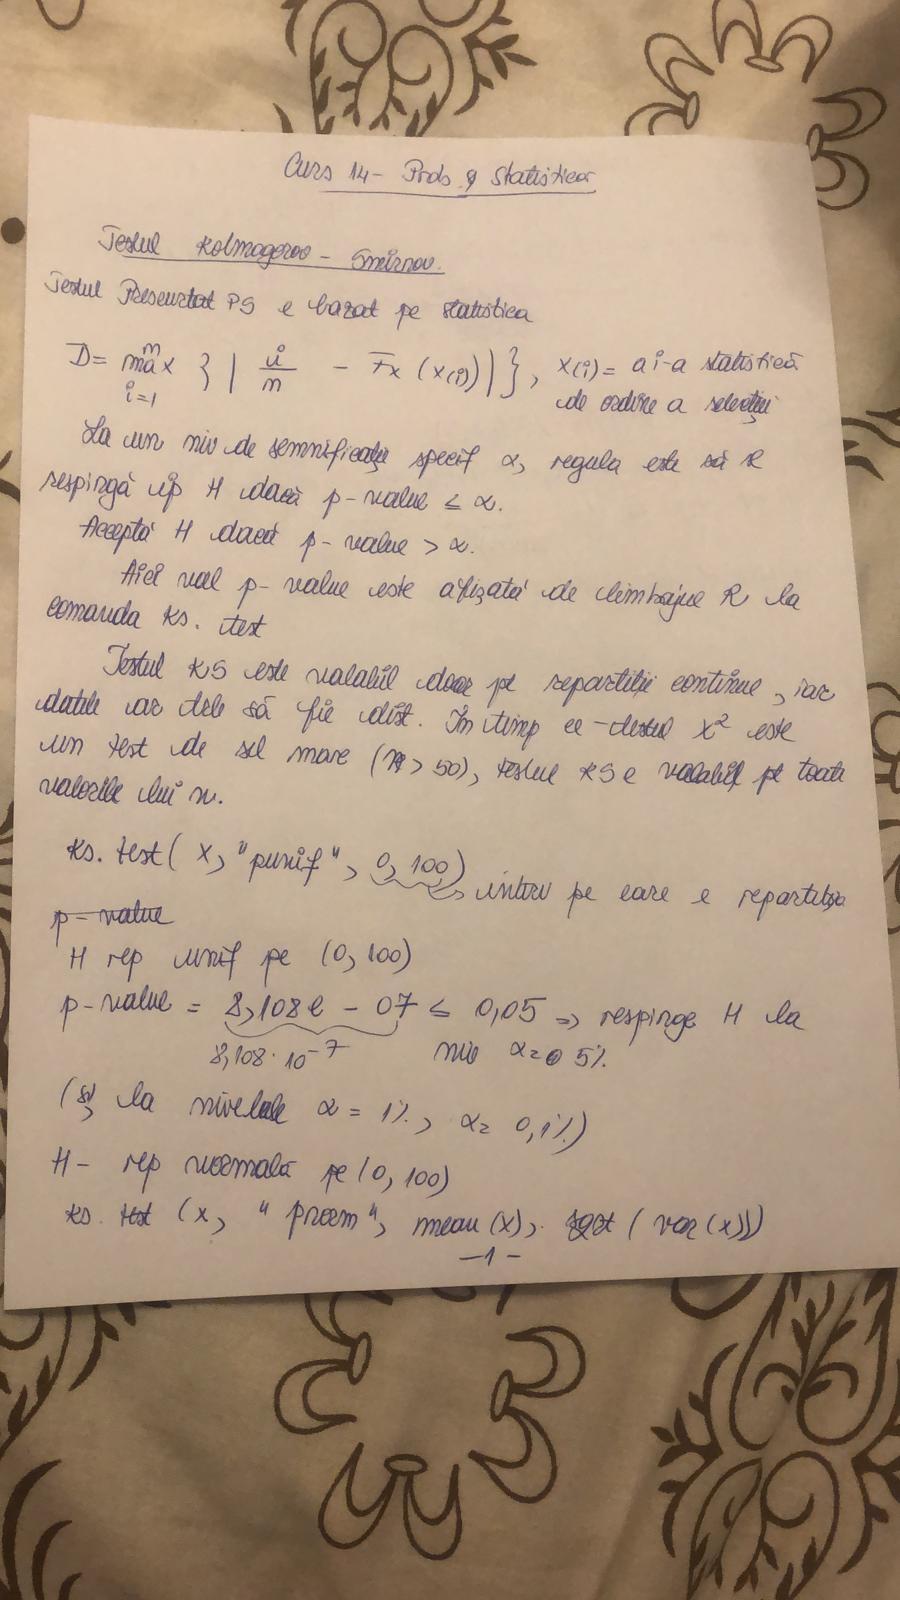 Curs 14 - Prob și Statistica
Testul Kolmogorov - Smirnov.
Testul Prescurtat PS e bazat pe statistica
D = max { | i/n - Fx (x(i)) | }, x(i) = a i-a statistică
n
i=1
de ordine a selecției
La un niv de semnificație specif α, regula este să R
respingă ip H dacă p-value ≤ α.
Acceptă H dacă p-value > α.
Aici val p-value este afișată de limbajul R la
comanda ks. test
Testul KS este valabil doar pt repartiții continue, iar
datele ar treb să fie dist. În timp ce testul χ² este
un test de sel mare (n > 50), testul KS e valabil pt toate
valorile lui n.
ks. test( x, "punif", 0, 100)
interv pe care e repartiția
p-value
H rep unif pe (0, 100)
p-value = 8,108e - 07 ≤ 0,05 => respinge H la
8,108 · 10⁻⁷ niv α = 5%.
(și la nivelele α = 1%, α = 0,1%)
H - rep normală pe (0, 100)
ks. test (x, "pnorm", mean(x), sqrt (var(x)))
- 1 -